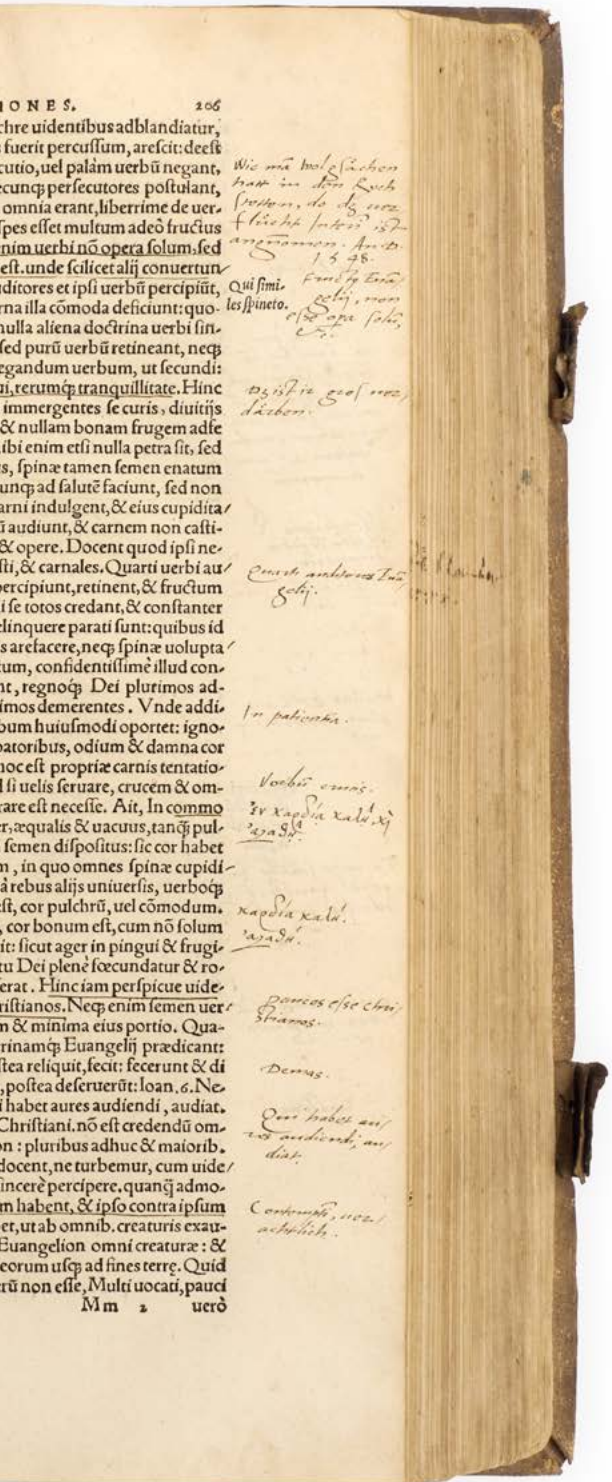 IONES. 206
chre uidentibus adblandiatur,
fuerit percussum, arescit: deest
cutio, uel palàm uerbū negant,
ecunq; persecutores postulant,
omnia erant, liberrime de uer-
spes esset multum adeò fructus
enim uerbi nō opera solum, sed
est. unde scilicet alij conuertun/
uditores et ipsi uerbū percipiūt,
rna illa cōmoda deficiunt: quo-
nulla aliena doctrina uerbi sin-
sed purū uerbū retineant, neq;
egandum uerbum, ut secundi:
ui, rerumq; tranquillitate. Hinc
immergentes se curis, diuitijs
& nullam bonam frugem adfe
ibi enim etsi nulla petra sit, sed
s, spinæ tamen semen enatum
unq; ad salutē faciunt, sed non
arni indulgent, & eius cupidita/
ū audiunt, & carnem non casti-
& opere. Docent quod ipsi ne-
sti, & carnales. Quarti uerbi au/
percipiunt, retinent, & fructum
i se totos credant, & constanter
elinquere parati sunt: quibus id
s arefacere, neq; spinæ uolupta/
tum, confidentissimè illud con-
nt, regnoq; Dei plurimos ad-
imos demerentes. Vnde addi-
bum huiusmodi oportet: igno-
batoribus, odium & damna cor
hoc est propriæ carnis tentatio-
l si uelis seruare, crucem & om-
rare est necesse. Ait, In commo
er, æqualis & uacuus, tanq̃ pul-
semen dispositus: sic cor habet
m, in quo omnes spinæ cupidi-
à rebus alijs uniuersis, uerboq;
st, cor pulchrū, uel cōmodum.
, cor bonum est, cum nō solum
it: sicut ager in pingui & frugi-
tu Dei plenè fœcundatur & ro-
erat. Hinc iam perspicue uide-
ristianos. Neq; enim semen uer/
n & minima eius portio. Qua-
rinamq; Euangelij prædicant:
stea reliquit, fecit: fecerunt & di
, postea deseruerūt: Ioan. 6. Ne-
i habet aures audiendi, audiat.
Christiani. nō est credendū om-
on: pluribus adhuc & maiorib.
docent, ne turbemur, cum uide/
sincerè percipere. quanq̃ admo-
m habent, & ipso contra ipsum
et, ut ab omnib. creaturis exau-
Euangelion omni creaturæ: &
eorum usq; ad fines terrę. Quid
rū non esse, Multi uocati, pauci
Mm 2 uerò
1548.
Qui simi-
les spineto.
gelij, non
esse opa solū,
Quarti auditores Euā
gelij.
In patientia.
Verbū
Ἐν καρδίᾳ καλῇ κ̀
ἀγαθῇ.
καρδία καλή.
ἀγαθή.
Paucos esse chri
stianos.
Demas.
Qui habet au/
res audiendi, au/
diat.
Contemptū, ver/
achtlich.